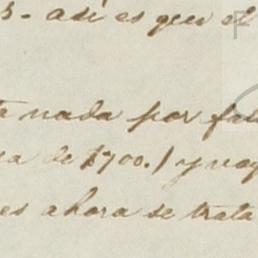 s - así es que el
nada por fal
a de $700.) y voy
es ahora se trata